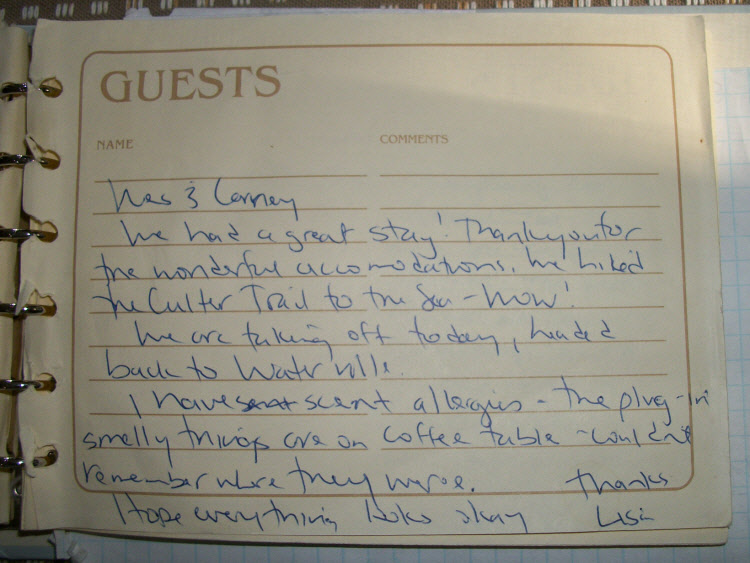 GUESTS
NAME
COMMENTS
Wes &
We had a great stay! Thankyou for
the wonderful accomodations. We hiked
the Culter Trail to the Sea - Wow!
We are taking off today, headed
back to Waterville.
I have scent allergies - the plug-in
smelly things are on coffee table - couldn't
remember where they were.
Thanks
I hope everything looks okay
Lisa